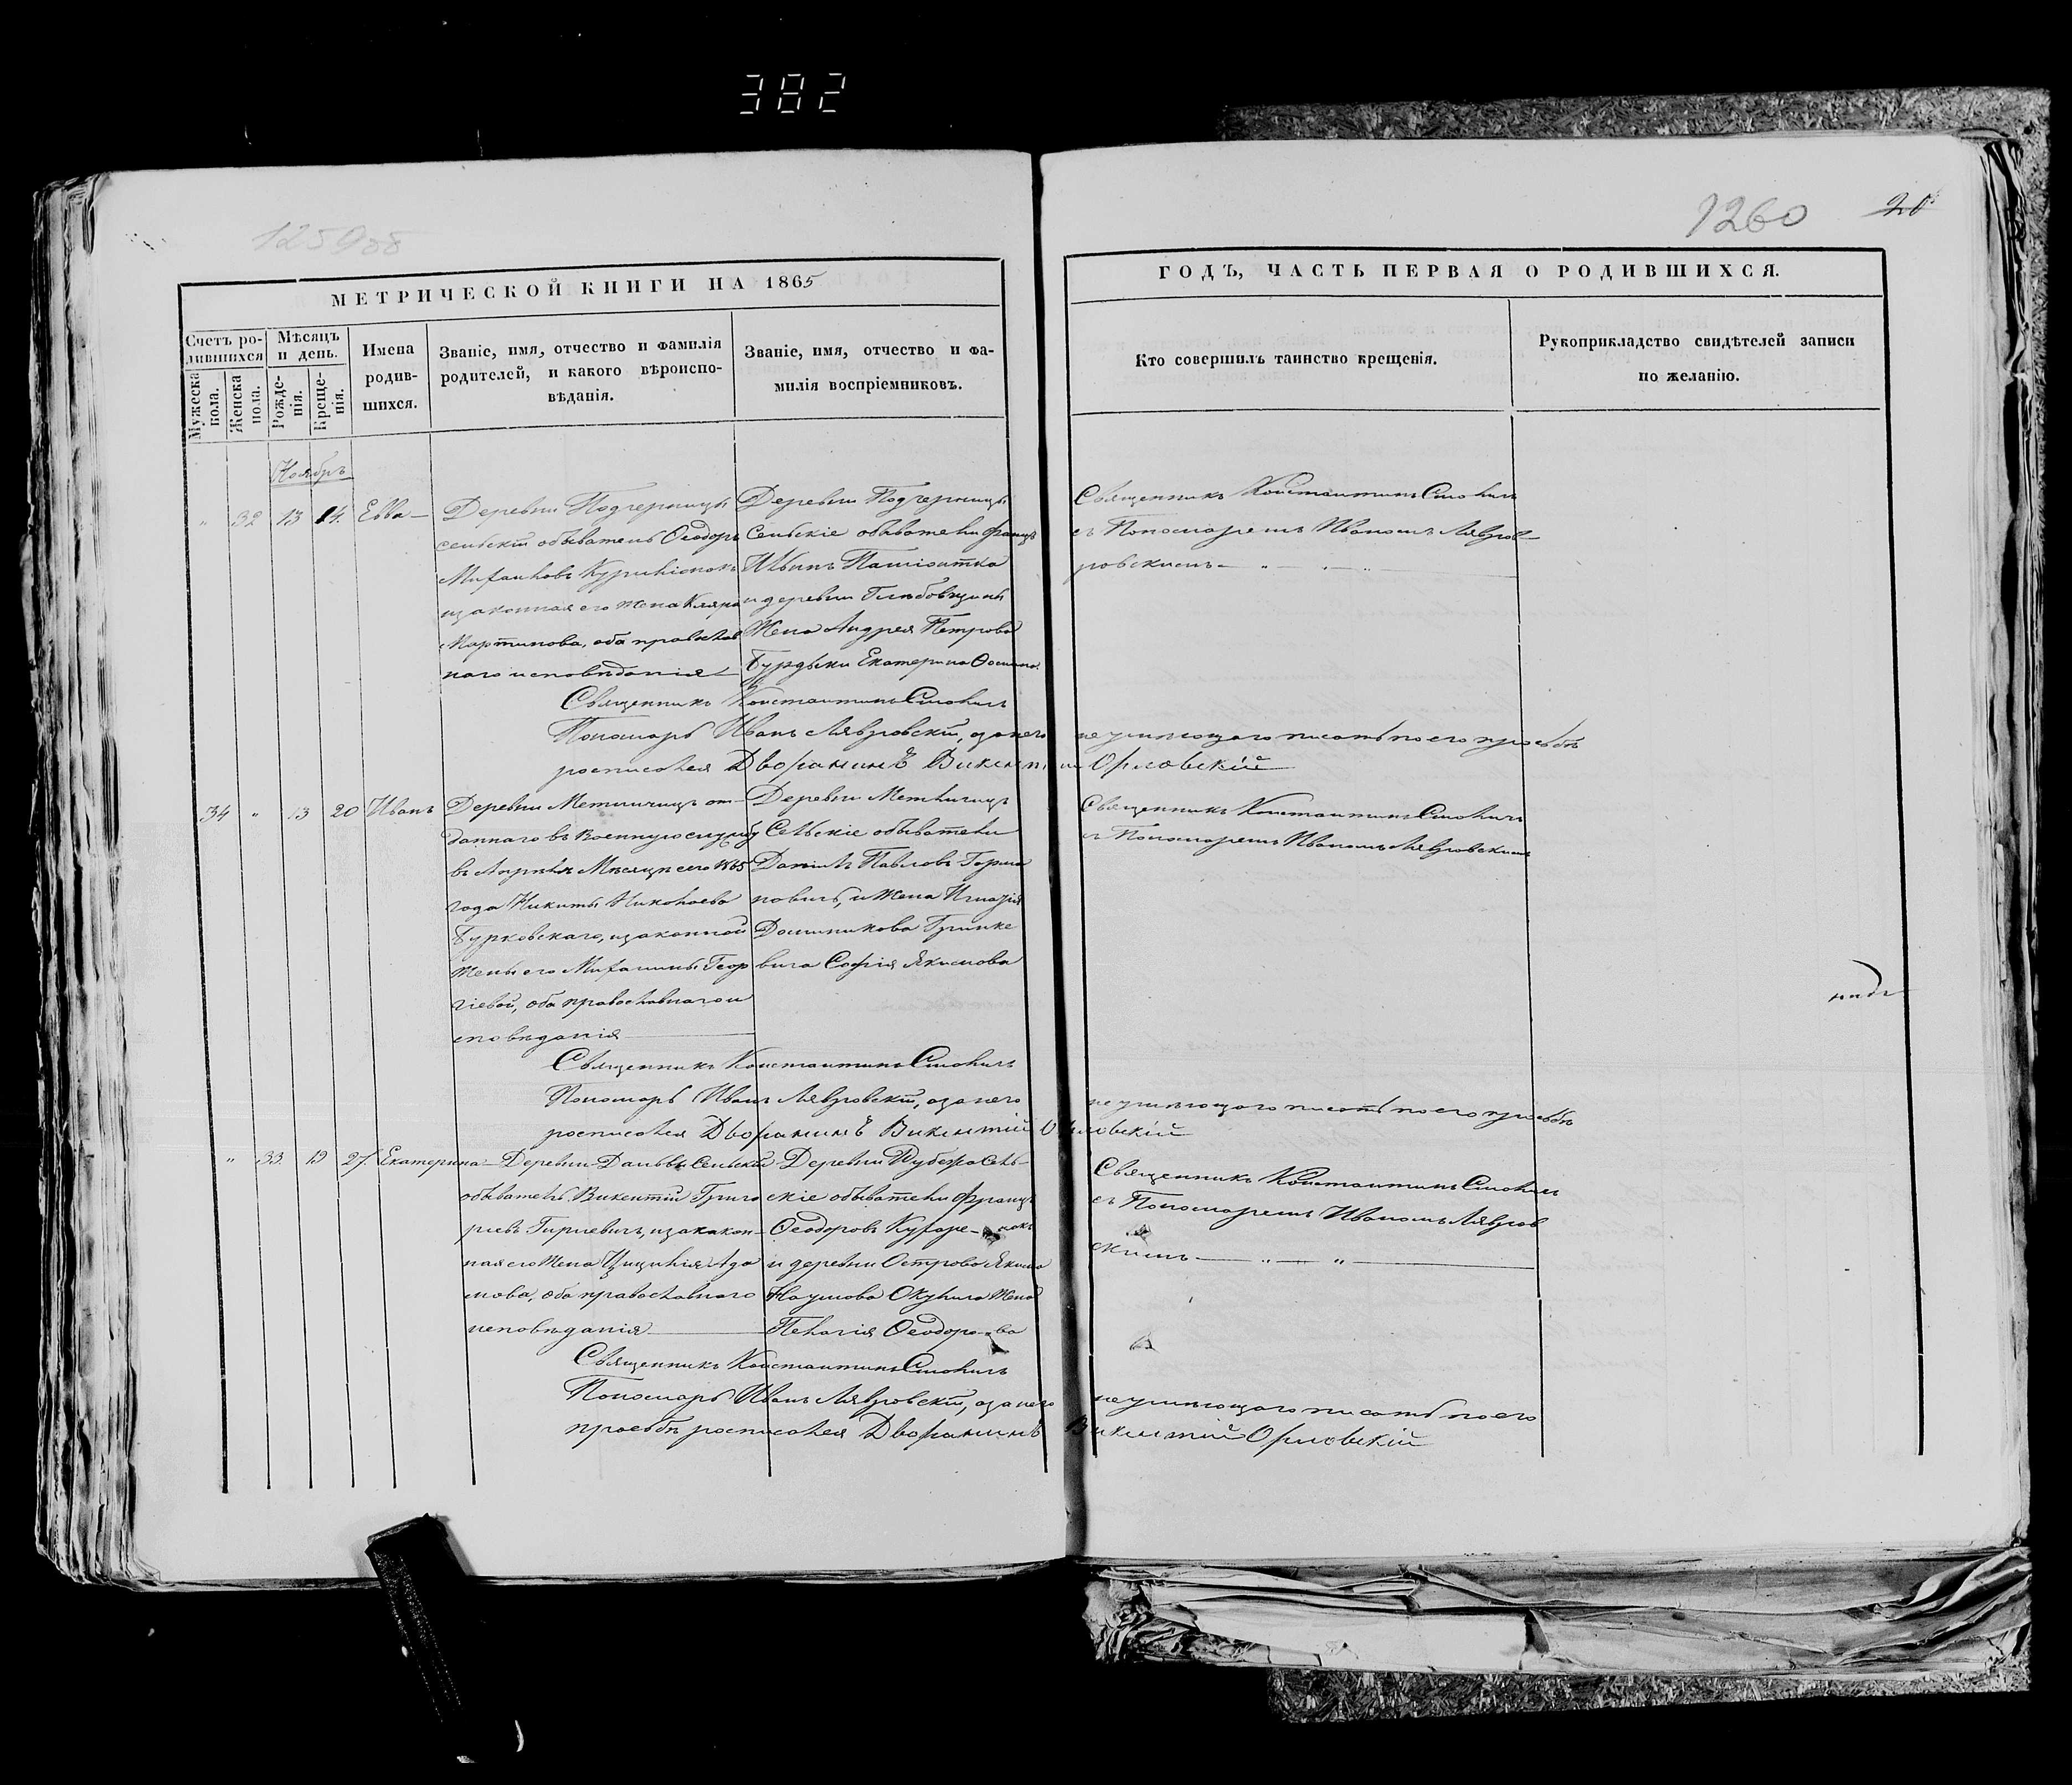 382
1259об
1260
МЕТРИЧЕСКОЙ КНИГИ НА 1865
ГОДЪ, ЧАСТЬ ПЕРВАЯ О РОДИВШИХСЯ.
Счетъ родившихся
Мужеска пола.
Женска пола.
Мѣсяцъ и день.
Рожденія.
Крещенія.
Имена родившихся.
Званіе, имя, отчество и фамилія
родителей, и какого вѣроиспо-
вѣданія.
Званіе, имя, отчество и фа-
милія воспріемниковъ.
Кто совершилъ таинство крещенія.
Рукоприкладство свидѣтелей записи
по желанію.
Ноябрь
" 32 13 14. Евва
Деревни
сельскій обыватель Ѳеодоръ
Михаиловъ
изаконная его жена
Мартинова, оба православ
наго исповѣданія
Деревни
Сельскіе обыватели Францъ
Ивинъ
и деревни
Жена Андрея Петрова
Екатерина
Священникъ Константинъ
съ Пономаремъ Иваномъ Лявров-
ровскимъ
Священникъ Константинъ
Пономарь Иванъ Лявровскій, азанего
неумѣющаго писать поего просьбѣ
росписался Дворянинъ Викентій Орловскій
34 " 13 20 Иванъ
Деревни от-
даннаго въ Военную службу
въ Апрѣлѣ Мѣсяцѣ сего 1865
года Никиты Николаева
Бурковскаго, изаконной
жены его Георг
гіевой, оба православнаго и
сповѣданія
Деревни
Сельскіе обыватели
Даніилъ Павловъ Горма
новичъ, и жена Игнатія
Доминикова Гринке
вича Софія Якимова
Священникъ Константинъ
съ Пономаремъ Иваномъ Лявровскимъ
Священникъ Константинъ
Пономарь Иванъ Лявровскій, азанего
неумѣющаго писать поего просьбѣ
росписался Дворянинъ Викентій Орловскій
" 33. 19 27. Екатерина
Деревни Сельскій
обыватель Викентій Григо
рьевъ изакакон-
ная его Жена Ада
мова, оба православнаго
исповѣданія
Деревни Сель-
скіе обыватели Францъ
Ѳеодоровъ
и деревни Острова Якима
Наумова Жена
Пелагія Ѳеодорова
Священникъ Константинъ
съ Пономаремъ Иваномъ Лявров
скимъ
Священникъ Константинъ
Пономарь Иванъ Лявровскій, азанего
неумѣющаго писать поего
просьбѣ росписался Дворянинъ Викентій Орловскій